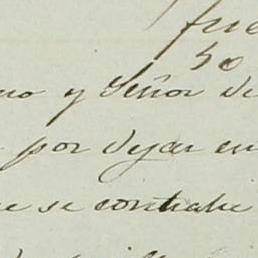 fue
no y Señor de
por dejar en
e se contrahe